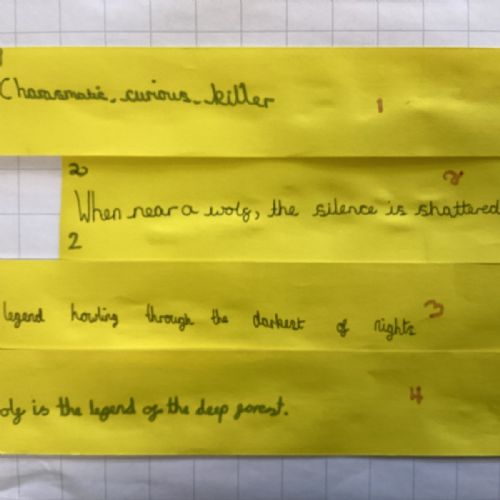 Charasmatic, curious, killer 1
2
When near a wolf, the silence is shattered 2
2
legend howling through the darkest of nights 3
olf is the legend of the deep forest. 4